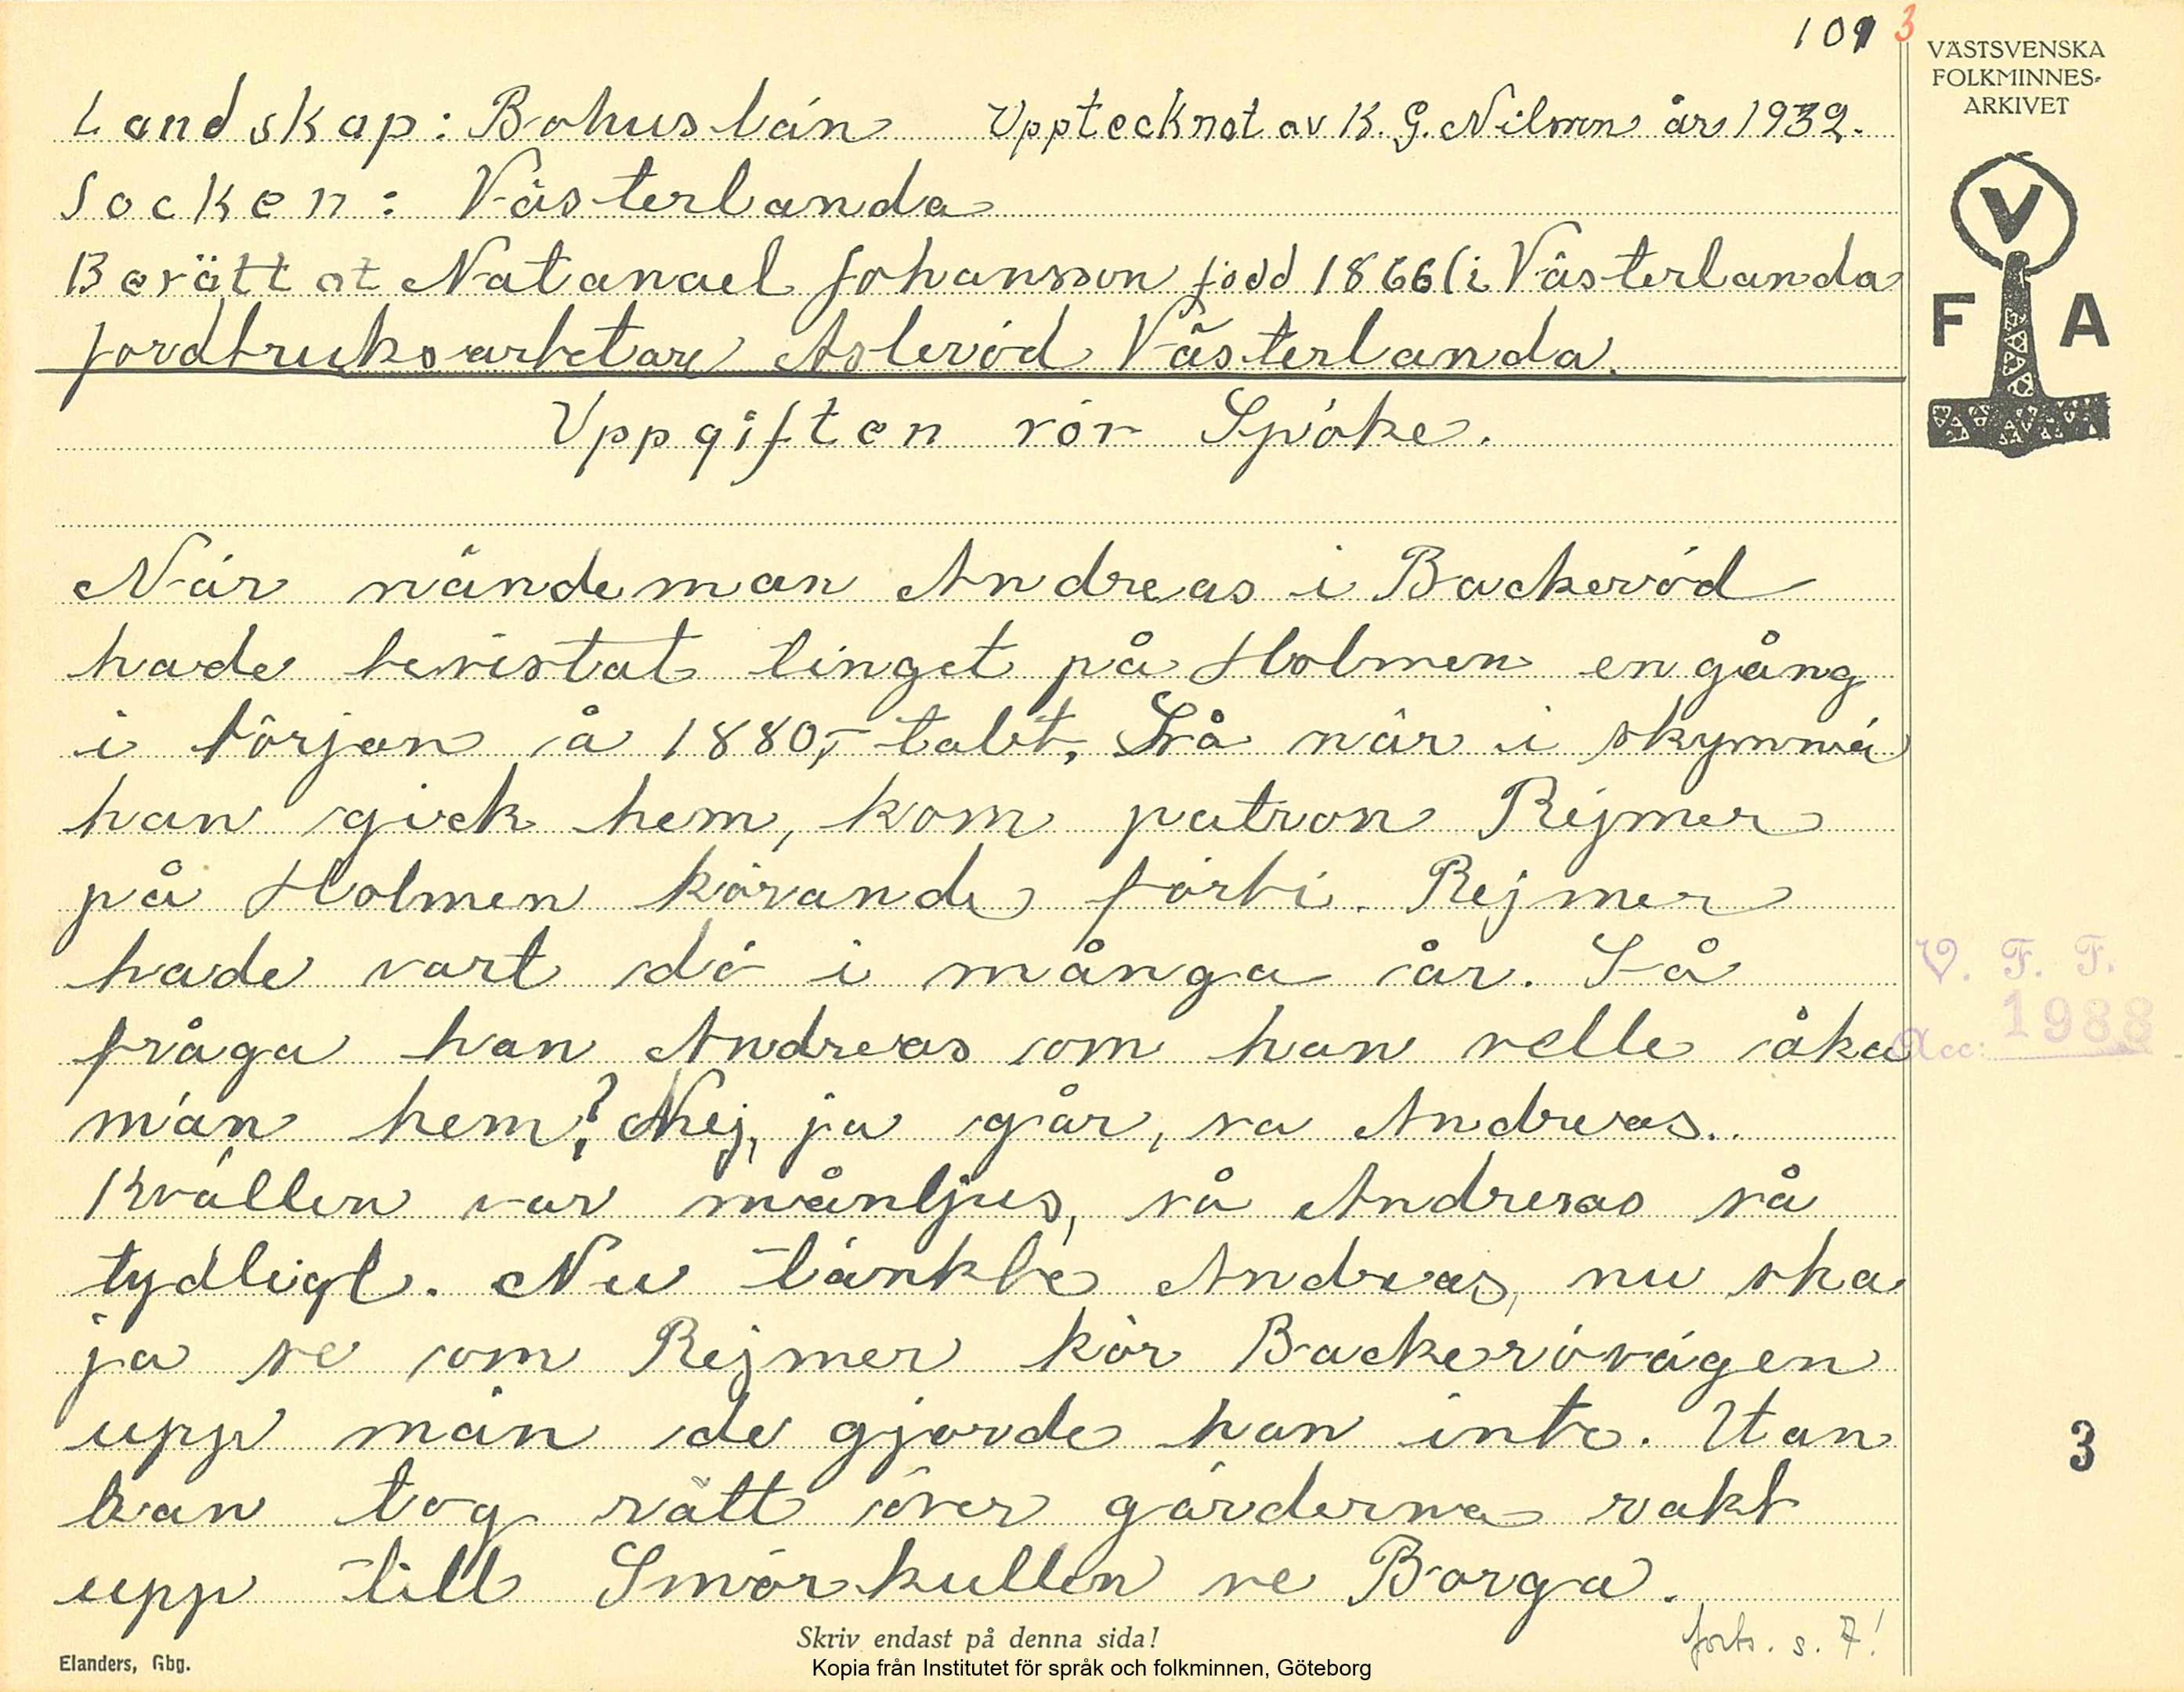 1013
VÄSTSVENSKA
FOLKMINNES-
ARKIVET
Landskap: Bohuslän Upptecknat av K. G. Nilson år 1932.
Socken: Västerlanda
Berätt at Natanael Johansson född 1866 i Västerlanda
jordbruksarbetare Asleröd Västerlanda.
V
F A
Uppgiften rör Spöke.
När nämdeman Andreas i Backeröd
hade bevistat tinget på Holmen en gång
i början å 1880,-talet, Så när i skymmä
han gick hem, kom patron Rejmer
på Holmen körande förbi. Rejmer
hade vart dö i många år. Så
fråga han Andreas om han velle åka
män hem? Nej, ja går, sa Andreas.
Kvällen var månljus, så Andreas så
tydligt. Nu tänkte Andreas, nu ska
ja se om Rejmer kör Backerövägen
upp män de gjorde han inte. Utan
han tog rätt över gärderna rakt
upp till Smörkullen ve Borga.
forts. s. 7!
V. F. F.
Acc: 1988
3
Skriv endast på denna sida!
Elanders, Gbg.
Kopia från Institutet för språk och folkminnen, Göteborg